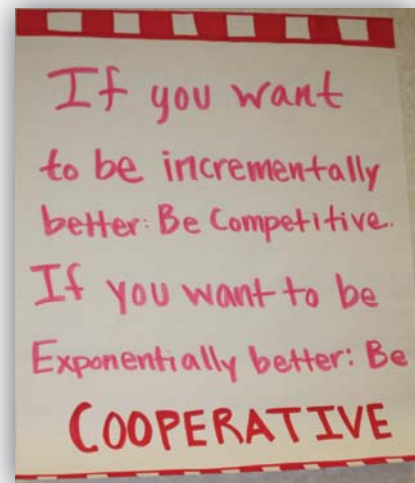 If you want
to be incrementally
better: Be Competitive.
If you want to be
Exponentially better: Be
COOPERATIVE